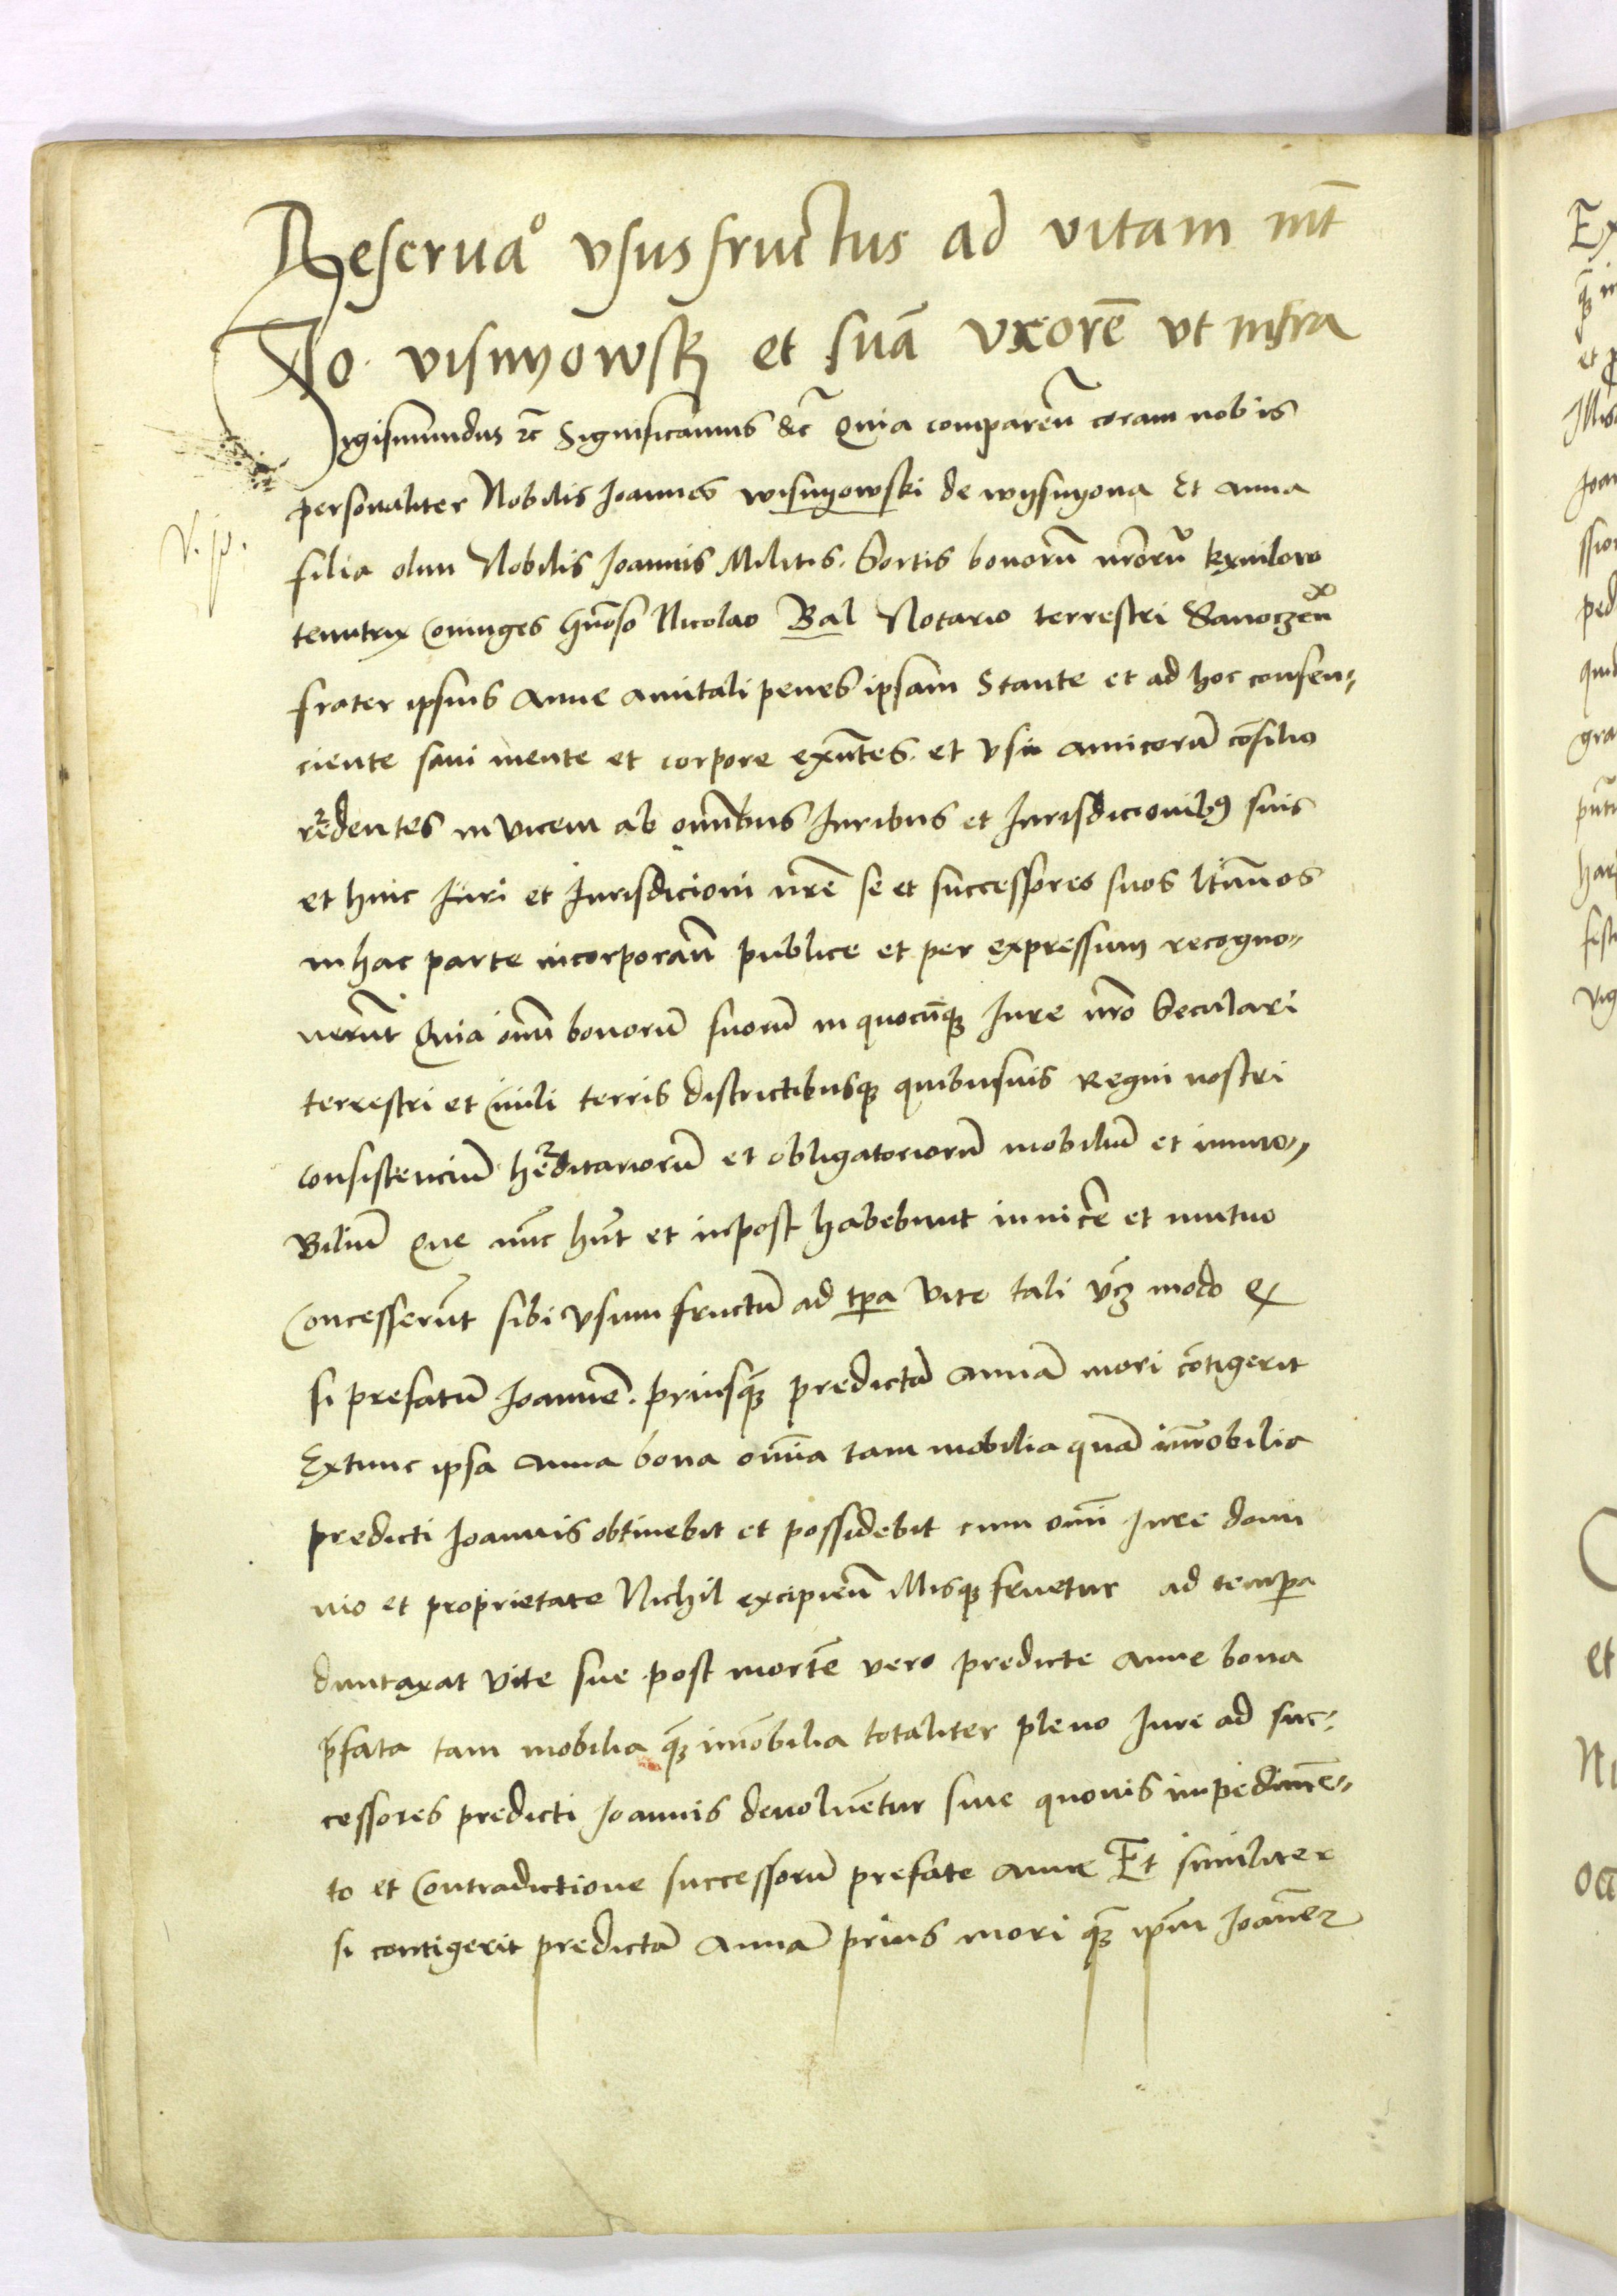 Reserua͠o vsusfructus ad vitam int̄
Jo. visnyowsky et suā vxorē vt infra
Sigismundus &c̄ Significamus &c̄ Quia comparen̄ coram nobis
personaliter Nobilis Joannes wisnyowski de wysnyona Et Anna
v. p.
filia olim Nobilis Joannis Militis. Sortis bonorū nr̄orū
tenutrix Coniuges Gn̄oso Nicolao Bal Notario terrestri Sanoczen̄
frater ipsius Anne amitali penes ipsam Stante et ad hoc consen-
ciente sani mente et corpore exn̄tes. et vsi amicorū cōsilio
recedentes inuicem ab omībus Juribus et Jurisdicionibꝰ suis
et huic Juri et Jurisdicioni nr̄e se et successores suos ltīmos
in hac parte incorporan̄ publice et per expressum recogno-
uerūt Quia om̄i bonorū suorū in quocūqꝫ Jure nr̄o Seculari
terrestri et Ciuili terris districtibusqꝫ quibusuis Regni nostri
consistenciū hereditariorū et obligatoriorū mobiliū et immo-
Biliū Que nūc hn̄t et inpost habebunt inuicē et mutuo
Concesserūt sibi vsumfructū ad tp̄a vite tali vcꝫ modo
si prefatū Joannē. priusqꝫ predictā Annā mori cōtigerit
Extunc ipsa Anna bona om̄ia tam mobilia quā imobilia
predicti Joannis obtinebit et possidebit cum om̄i Jure domi
nio et proprietate Nichil excipien̄ illisqꝫ fruetur ad temp̄a
duntaxat vite sue post mortē vero predicte Anne bona
p̄fata tam mobilia qꝫ imōbilia totaliter pleno Jure ad suc-
cessores predicti Joannis deuoluētur sine quouis impedimē-
to et Contradictione successorū prefate Anne Et similiter
si contigerit predictā Annā prius mori qꝫ ip̄m Joannē